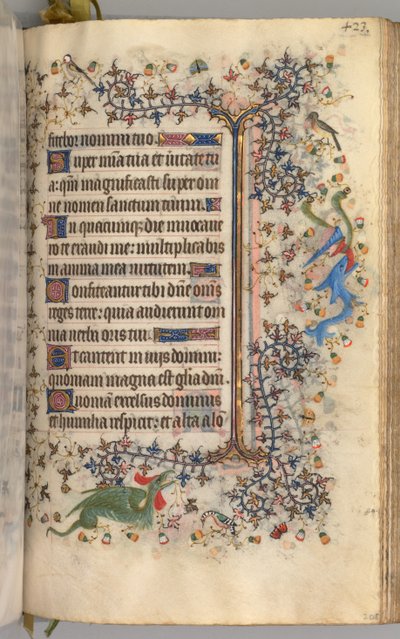 423.
fitebor nomini tuo.
Super mīa tua et ūitate tu
a: qm̄ magnificasti super om
ne nomen sanctum tuum.
In quacumq; die inuocaue
ro te exaudi me: multiplicabis
in anima mea uirtutem.
Confiteantur tibi dñe om̄s
reges terre: quia audierunt om
nia uerba oris tui.
Et cantent in uiis domini:
quoniam magna est glīa dñi.
Quoniam excelsus dominus
et humilia respicit: et alta a lō
208